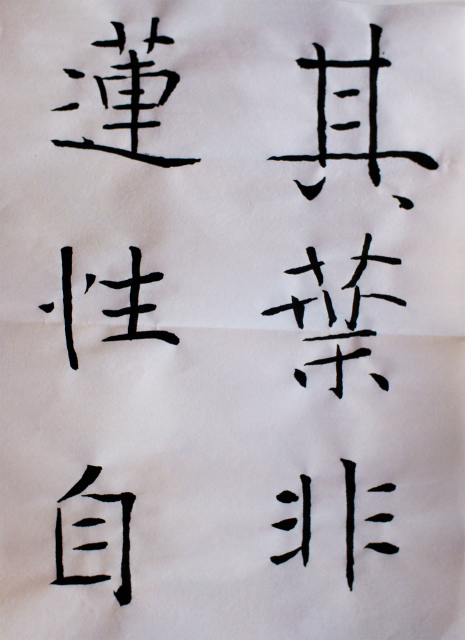 其葉非
蓮性自